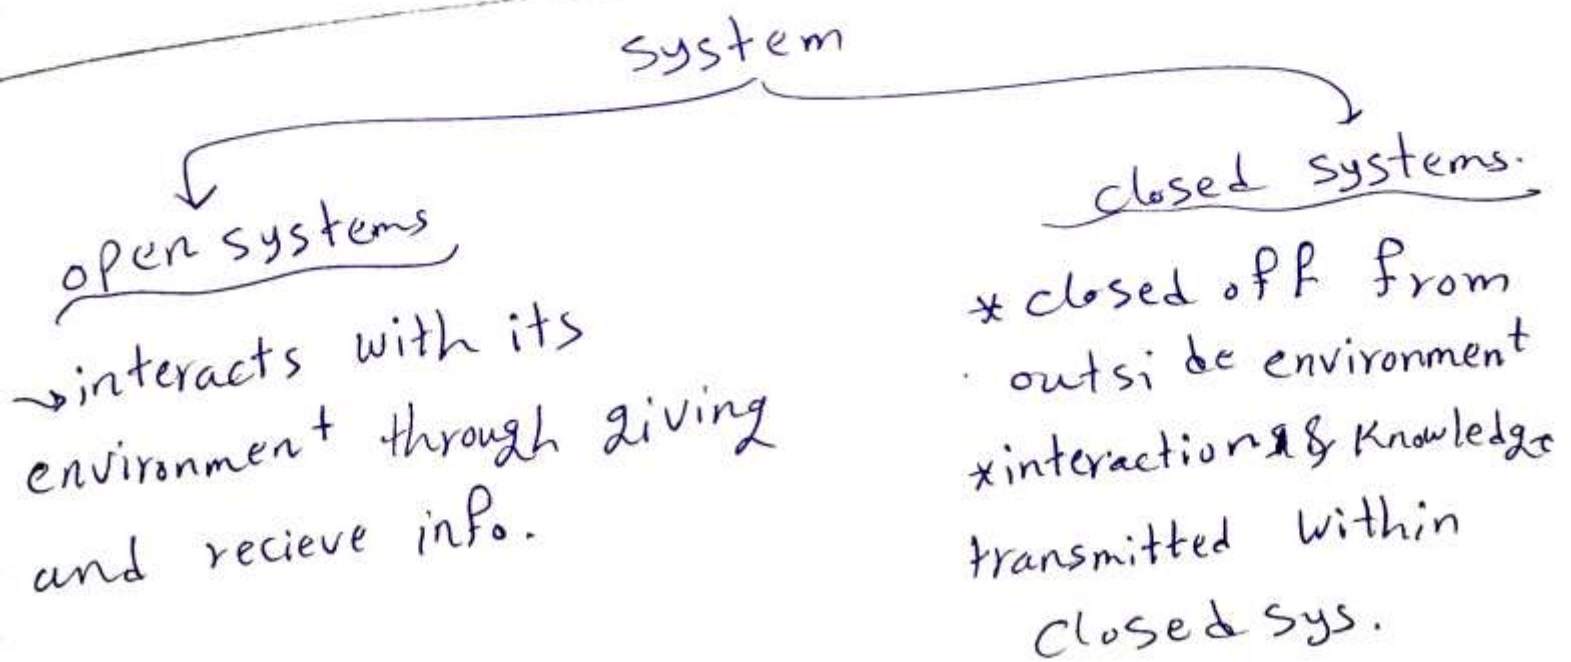 system
open systems
→interacts with its
environment through giving
and recieve info.
closed systems.
* closed off from
outside environment
*interactions & Knowledge
transmitted within
closed sys.